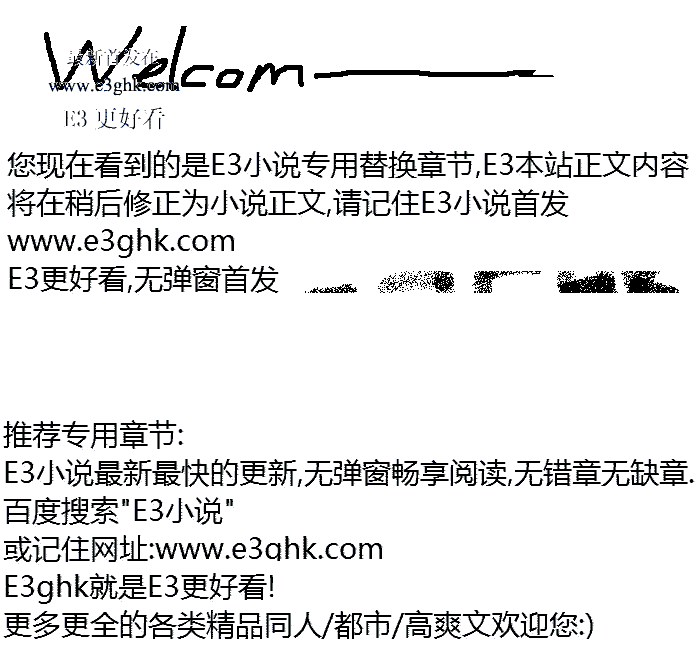 Welcom
最新首发在
www.e3ghk.com
E3 更好看
您现在看到的是E3小说专用替换章节,E3本站正文内容
将在稍后修正为小说正文,请记住E3小说首发
www.e3ghk.com
E3更好看,无弹窗首发
推荐专用章节:
E3小说最新最快的更新,无弹窗畅享阅读,无错章无缺章.
百度搜索"E3小说"
或记住网址:www.e3ghk.com
E3ghk就是E3更好看!
更多更全的各类精品同人/都市/高爽文欢迎您:)